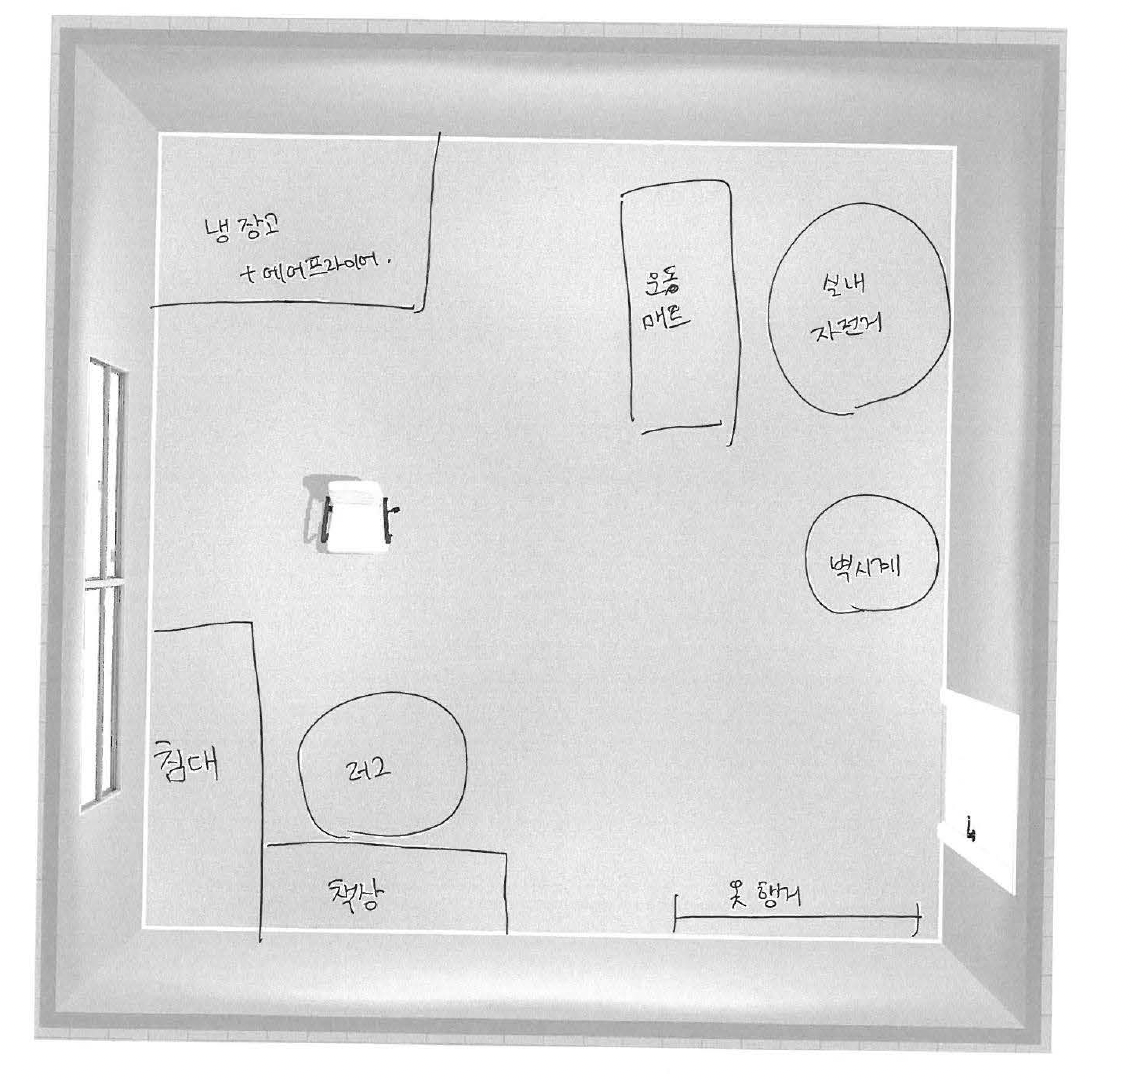 냉장고
+ 에어프라이어.
운동
매트
실내
자전거
벽시계
침대
러그
책상
옷 행거